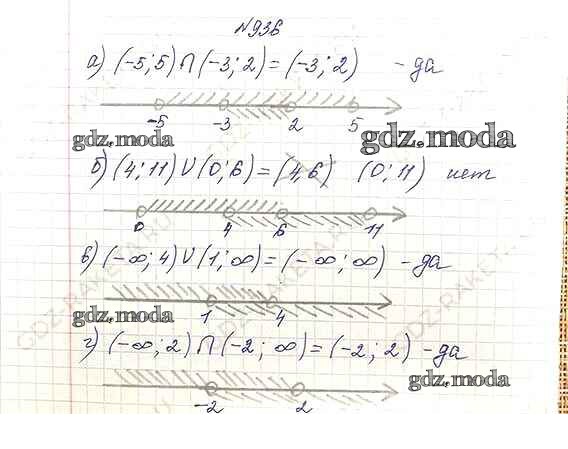 №936
а) (-5; 5) ∩ (-3; 2) = (-3; 2) - да
-5 -3 2 5
gdz.moda gdz.moda
б) (4; 11) ∪ (0; 6) = (4, 6) (0; 11) нет
0 4 6 11
в) (-∞; 4) ∪ (1; ∞) = (-∞; ∞) - да
gdz.moda 1 4
г) (-∞; 2) ∩ (-2; ∞) = (-2; 2) - да
gdz.moda
-2 2